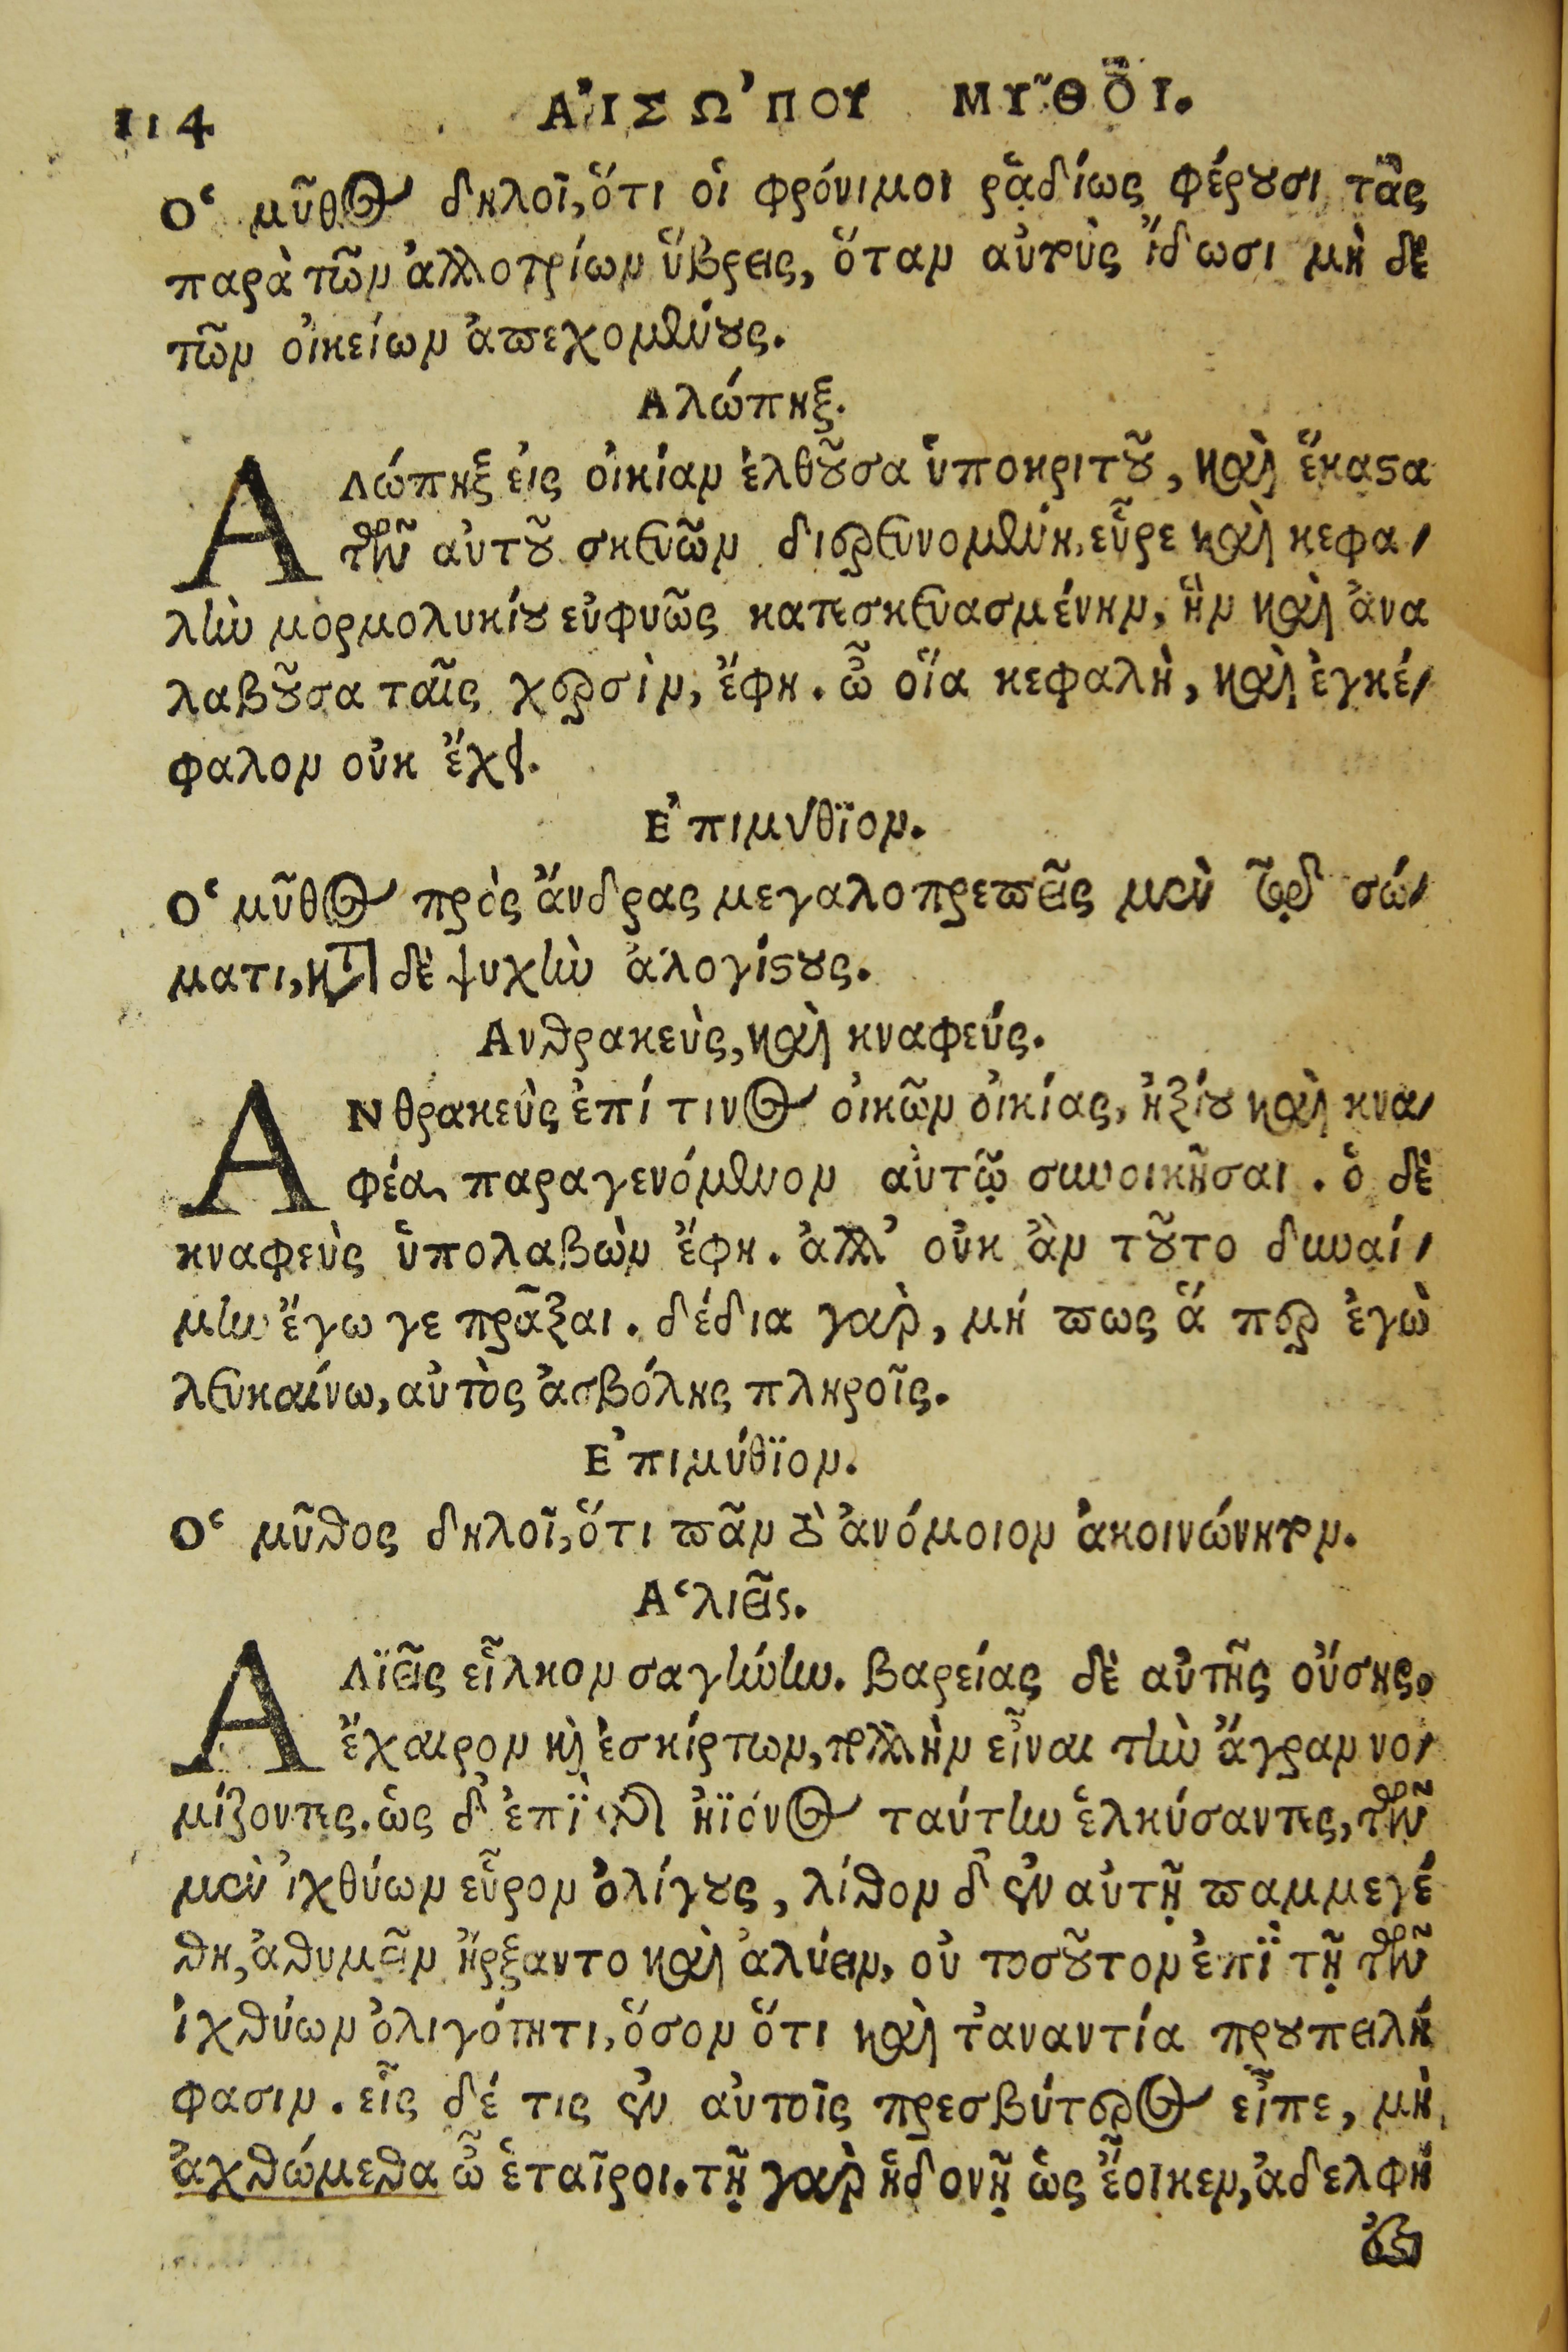 114 ΑἸΣΩ'ΠΟΥ ΜΥ͂ΘΟΙ.
Ο῾ μῦθος δηλοῖ, ὅτι οἱ φρόνιμοι ῥᾳδίως φέρουσι τὰς
παρὰ τῶν ἀλλοτρίων ὕβρεις, ὅταν αὐτοὺς ἴδωσι μὴ δὲ
τῶν οἰκείων ἀπεχομένους.
Αλώπηξ.
ΑΛώπηξ εἰς οἰκίαν ἐλθοῦσα ὑποκριτοῦ, καὶ ἕκαστα
τῶν αὐτοῦ σκευῶν διερευνομένη, εὗρε καὶ κεφα/
λὴν μορμολυκίου εὐφυῶς κατεσκευασμένην, ἣν καὶ ἀνα
λαβοῦσα ταῖς χερσὶν, ἔφη. ὦ οἵα κεφαλὴ, καὶ ἐγκέ/
φαλον οὐκ ἔχει.
Ε᾿πιμύθϊον.
Ο῾ μῦθος πρὸς ἄνδρας μεγαλοπρεπεῖς μὲν τῷ σώ/
ματι, κατὰ δὲ ψυχὴν ἀλογίστους.
Ανθρακεὺς, καὶ κναφεύς.
ΑΝθρακεὺς ἐπί τινος οἰκῶν οἰκίας, ἠξίου καὶ κνα/
φέα παραγενόμενον αὐτῷ συνοικῆσαι. ὁ δὲ
κναφεὺς ὑπολαβὼν ἔφη. ἀλλ' οὐκ ἂν τοῦτο δυναί/
μην ἔγω γε πρᾶξαι. δέδια γὰρ, μή πως ἅ περ ἐγὼ
λευκαίνω, αὐτὸς ἀσβόλης πληροῖς.
Ε᾿πιμύθϊον.
Ο῾ μῦθος δηλοῖ, ὅτι πᾶν τὸ ἀνόμοιον ἀκοινώνητον.
Α῾λιεῖς.
ΑΛϊεῖς εἷλκον σαγήνην. βαρείας δὲ αὐτῆς οὔσης,
ἔχαιρον καὶ ἐσκίρτων, πολλὴν εἶναι τὴν ἄγραν νο/
μίζοντες. ὡς δ' ἐπϊ τῆς ἠϊόνος ταύτην ἑλκύσαντες, τῶν
μὲν ἰχθύων εὗρον ὀλίγους, λίθον δ' ἐν αὐτῇ παμμεγέ
θη, ἀθυμεῖν ἤρξαντο καὶ ἀλύειν, οὐ τοσοῦτον ἐπϊ τῇ τῶν
ἰχθύων ὀλιγότητι, ὅσον ὅτι καὶ τἀναντία προυπειλή
φασιν. εἷς δέ τις ἐν αὐτοῖς πρεσβύτερος εἶπε, μὴ
ἀχθώμεθα ὦ ἑταῖροι. τῇ γὰρ ἡδονῇ ὡς ἔοικεν, ἀδελφή